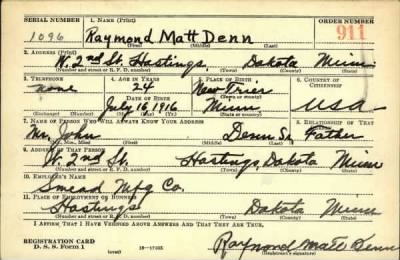 SERIAL NUMBER 1. NAME (Print) ORDER NUMBER
1096 Raymond Matt Denn 911
(First) (Middle) (Last)
2. ADDRESS (Print)
W. 2nd St. Hastings, Dakota Minn.
(Number and street or R. F. D. number) (Town) (County) (State)
3. TELEPHONE 4. AGE IN YEARS 5. PLACE OF BIRTH 6. COUNTRY OF CITIZENSHIP
none 24 New Trier
DATE OF BIRTH (Town or county)
July 16, 1916 Minn USA
(Exchange) (Number) (Mo.) (Day) (Yr.) (State or country)
7. NAME OF PERSON WHO WILL ALWAYS KNOW YOUR ADDRESS 8. RELATIONSHIP OF THAT PERSON
Mr. John Denn Sr. Father
(Mr., Mrs., Miss) (First) (Middle) (Last)
9. ADDRESS OF THAT PERSON
W. 2nd St. Hastings, Dakota Minn
(Number and street or R. F. D. number) (Town) (County) (State)
10. EMPLOYER'S NAME
Smead Mfg Co.
11. PLACE OF EMPLOYMENT OR BUSINESS
Hastings Dakota Minn
(Number and street or R. F. D. number) (Town) (County) (State)
I AFFIRM THAT I HAVE VERIFIED ABOVE ANSWERS AND THAT THEY ARE TRUE.
REGISTRATION CARD
D. S. S. Form 1 16—17105 Raymond Matt Denn
(Registrant's signature)